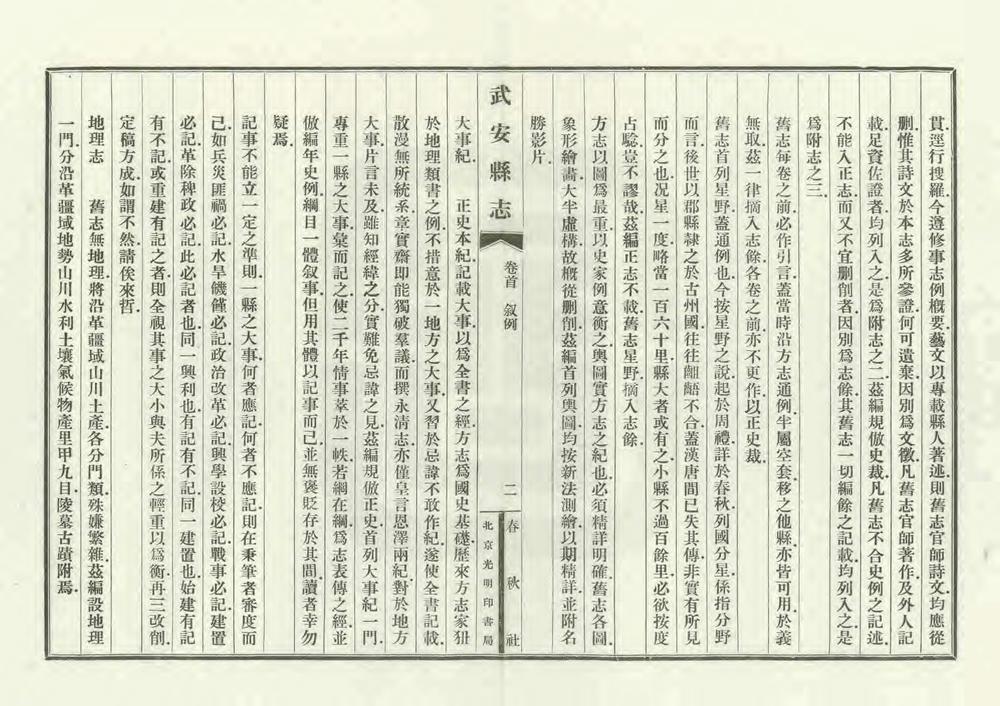 貫逕行搜羅今遵修事志例概要藝文以專載縣人著述則舊志官師詩文均應從
刪惟其詩文於本志多所參證何可遺棄因別爲文徵凡舊志官師著作及外人記
載足資佐證者均列入之是爲附志之二茲編規倣史裁凡舊志不合史例之記述
不能入正志而又不宜刪削者因別爲志餘其舊志一切編餘之記載均列入之是
爲附志之三
舊志每卷之前必作引言蓋當時沿方志通例半屬空套移之他縣亦皆可用於義
無取茲一律摘入志餘各卷之前亦不更作以正史裁
舊志首列星野蓋通例也今按星野之說起於周禮詳於春秋列國分星係指分野
而言後世以郡縣隸之於古州國往往齟齬不合蓋漢唐間已失其傳非實有所見
而分之也况星一度略當一百六十里縣大者或有之小縣不過百餘里必欲按度
占驗豈不謬哉茲編正志不載舊志星野摘入志餘
方志以圖爲最重以史家例意衡之輿圖實方志之紀也必須精詳明確舊志各圖
象形繪畵大半虛構故概從刪削茲編首列輿圖均按新法測繪以期精詳並附名
勝影片
武安縣志
卷首 叙例
二
春秋社
北京光明印書局
大事紀 正史本紀記載大事以爲全書之經方志爲國史基礎歷來方志家狃
於地理類書之例不措意於一地方之大事又習於忌諱不敢作紀遂使全書記載
散漫無所統系章實齋即能獨破羣議而撰永清志亦僅皇言恩澤兩紀對於地方
大事片言未及雖知經緯之分實難免忌諱之見茲編規倣正史首列大事紀一門
專重一縣之大事彙而記之使二千年情事萃於一帙若綱在綱爲志表傳之經並
倣編年史例綱目一體叙事但用其體以記事而已並無褒貶存於其間讀者幸勿
疑焉
記事不能立一定之準則一縣之大事何者應記何者不應記則在秉筆者審度而
已如兵災匪禍必記水旱饑饉必記政治改革必記興學設校必記戰事必記建置
必記革除稗政必記此必記者也同一興利也有記有不記同一建置也始建有記
有不記或重建有記之者則全視其事之大小與夫所係之輕重以爲衡再三改削
定稿方成如謂不然請俟來哲
地理志 舊志無地理將沿革疆域山川土產各分門類殊嫌繁雜茲編設地理
一門分沿革疆域地勢山川水利土壤氣候物產里甲九目陵墓古蹟附焉